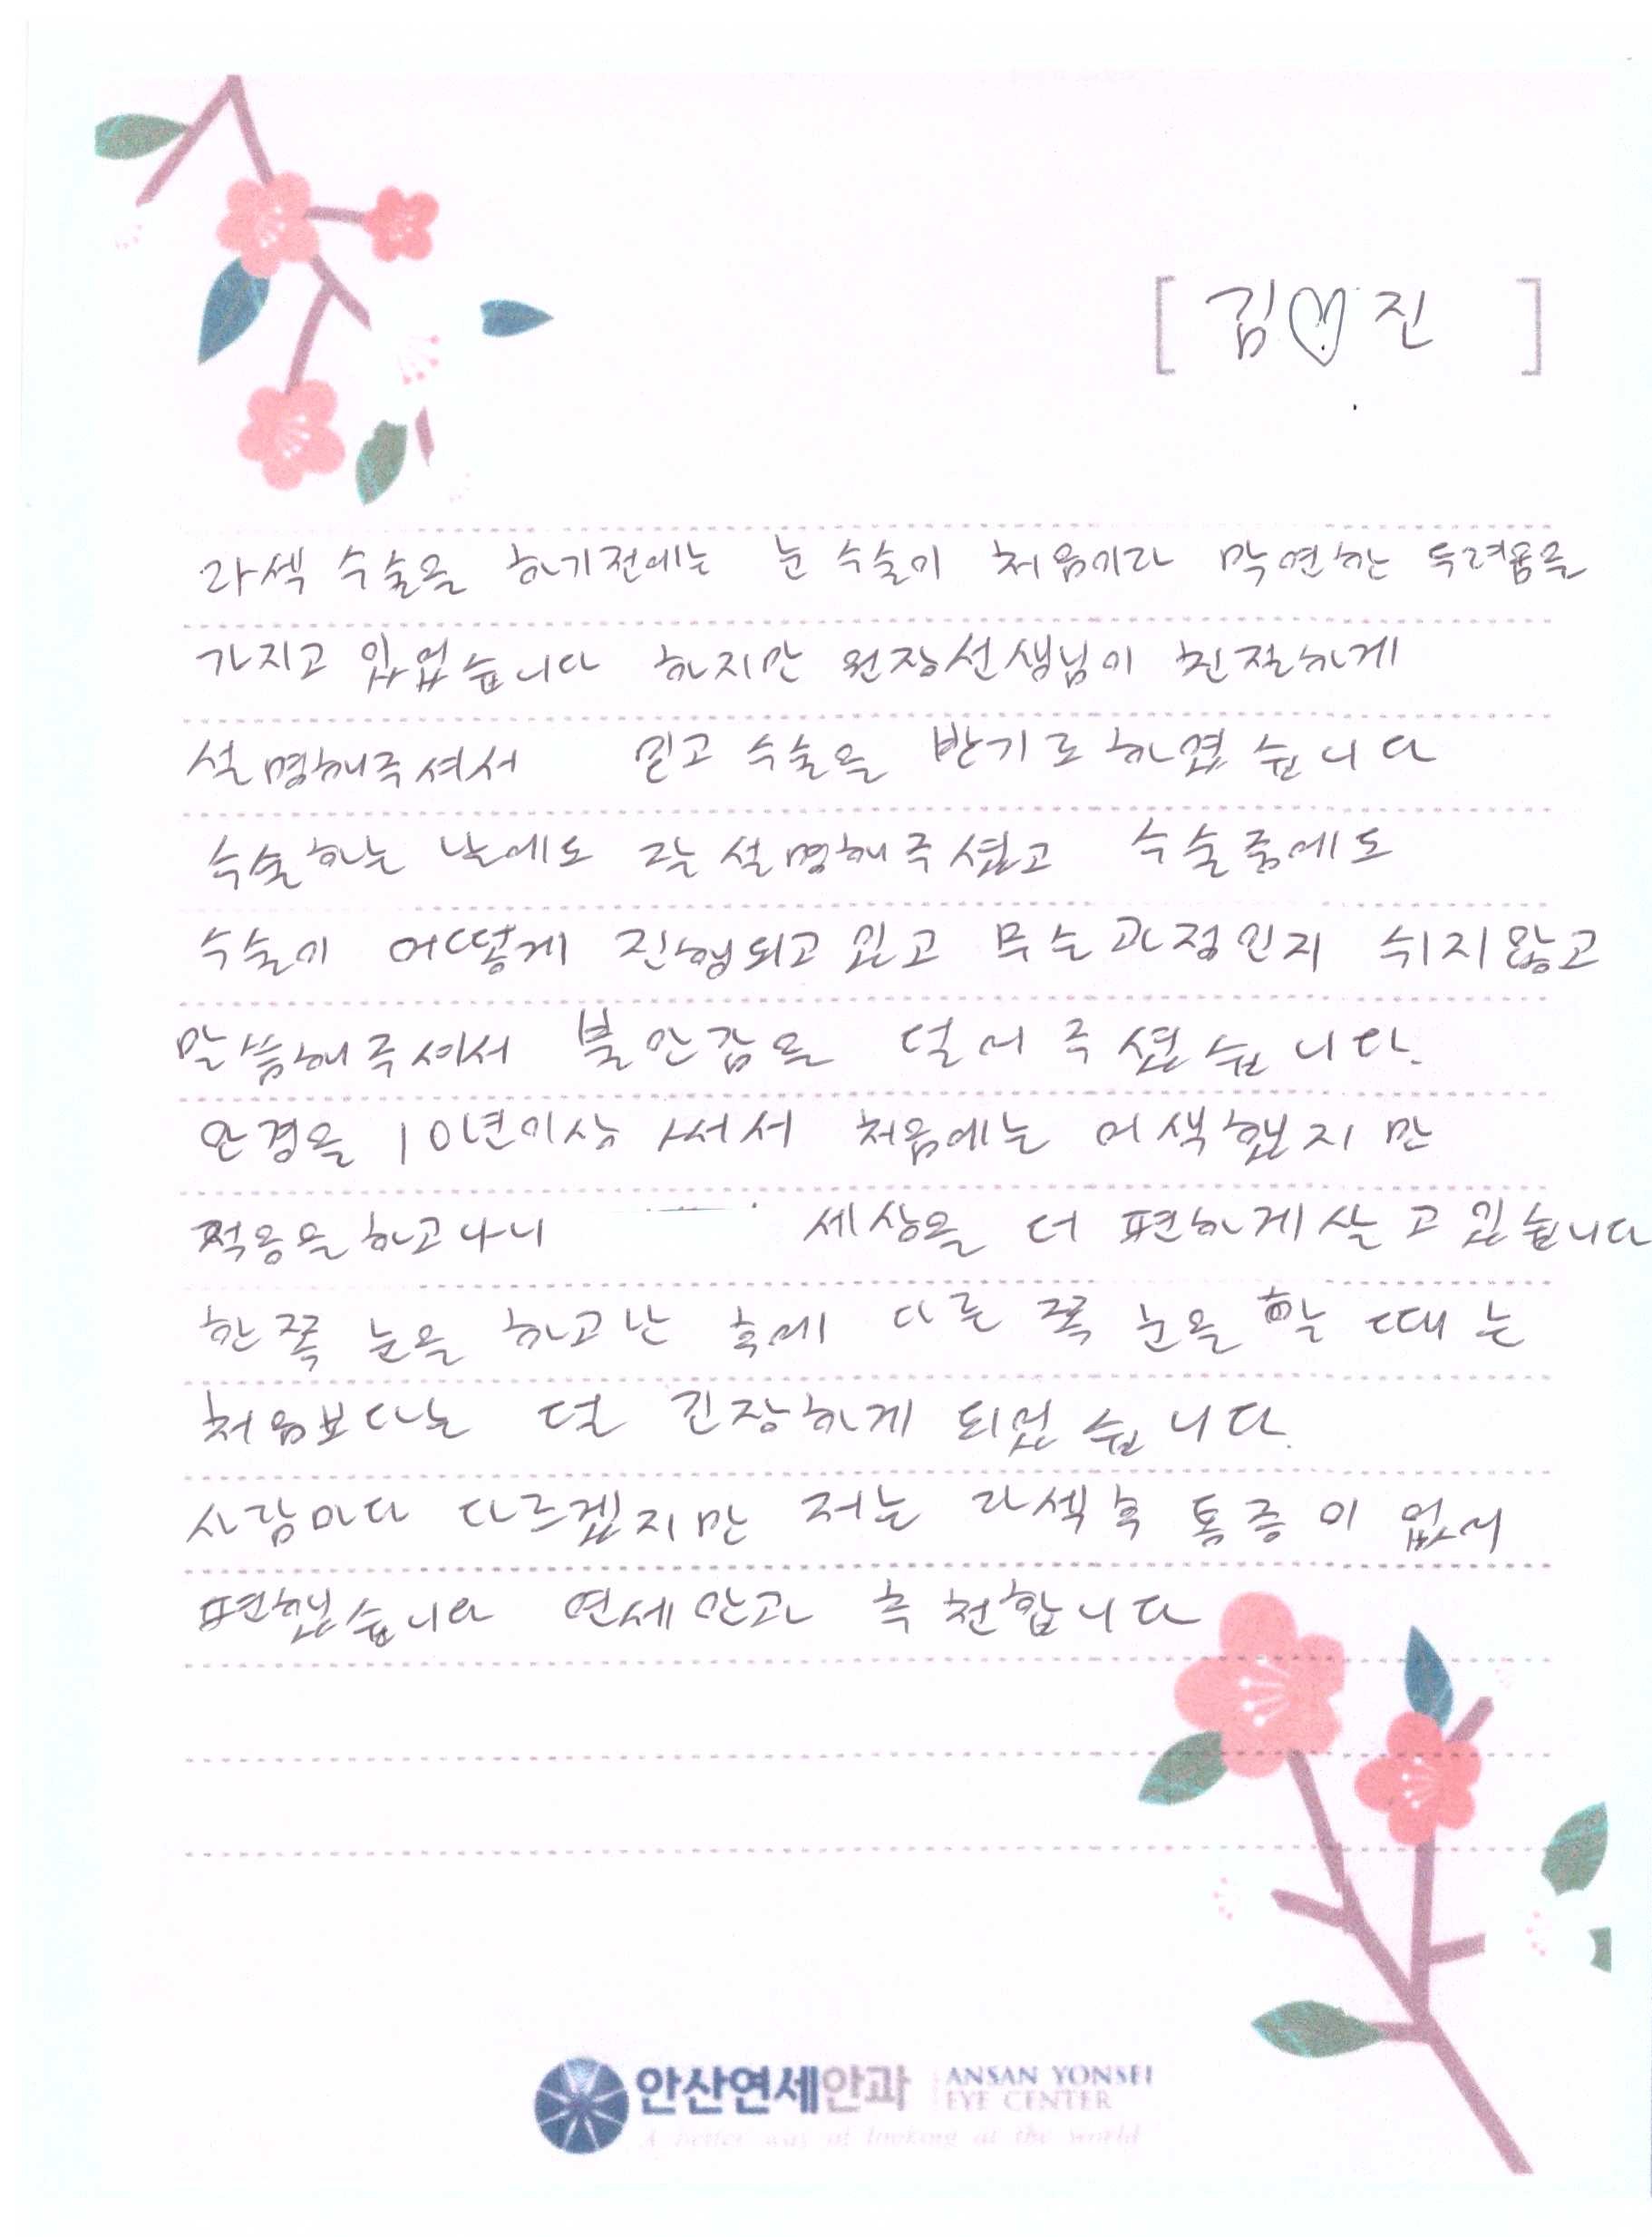 [ 김♡진 ]
라섹 수술을 하기전에는 눈 수술이 처음이라 막연한 두려움을
가지고 있었습니다 하지만 원장선생님이 친절하게
설명해주셔서 믿고 수술을 받기로 하였습니다
수술하는 날에도 각 설명해주셨고 수술중에도
수술이 어떻게 진행되고있고 무슨과정인지 쉬지않고
말씀해주셔서 불안감을 덜어주셨습니다.
안경을 10년이상 써서 처음에는 어색했지만
적응을하고나니 세상을 더 편하게살고있습니다
한쪽 눈을 하고난 후에 다른 쪽 눈을 할 때는
처음보다는 덜 긴장하게 되었습니다.
사람마다 다르겠지만 저는 라섹후 통증이 없어
편했습니다 연세안과 추천합니다
안산연세안과
ANSAN YONSEI
EYE CENTER
A better way of looking at the world